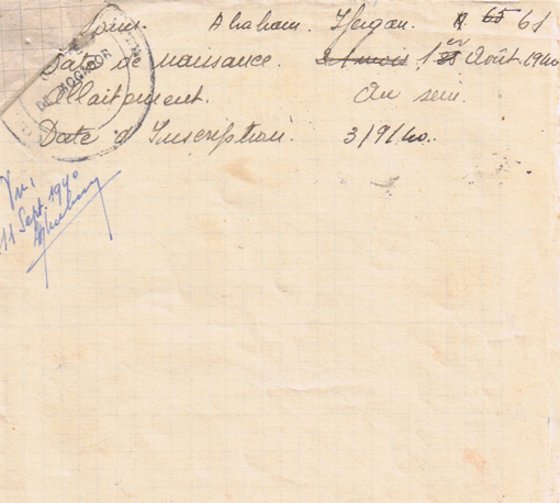 Nom. Abraham. Ifergan. N. 65 61
Date de naissance. 1 mois 1er Août 1940
Allaitement. Au sein.
Date d'Inscription. 3/9/40.
DE MOGADOR
Vu.
11 Sept. 1940